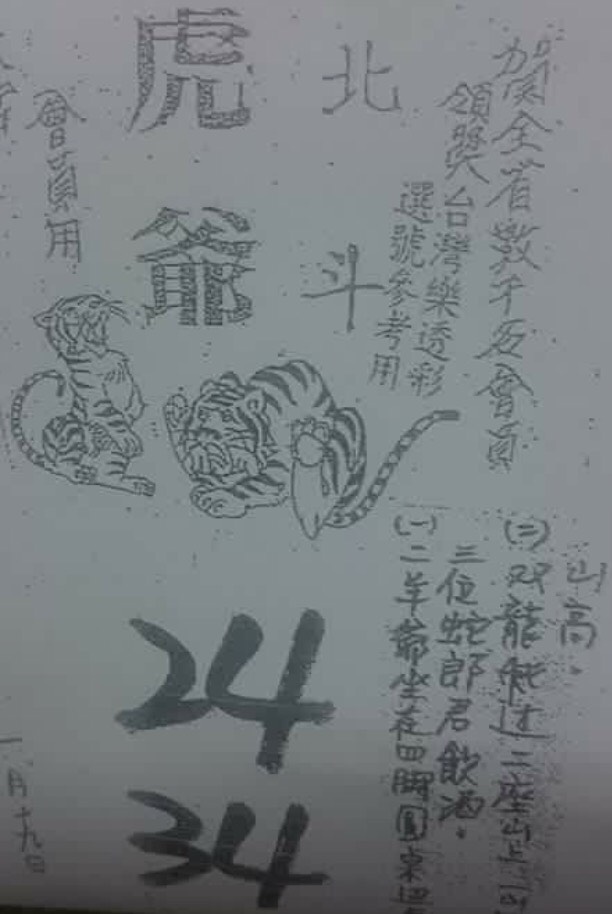 賀全省數千會員
領獎台灣樂透彩
選號參考用
北斗
虎爺
會員用
山高。
(二)双龍能过二座山
三位蛇郎君飲酒。
(一)二羊爺坐在四脚圓
24
34
一月十九日